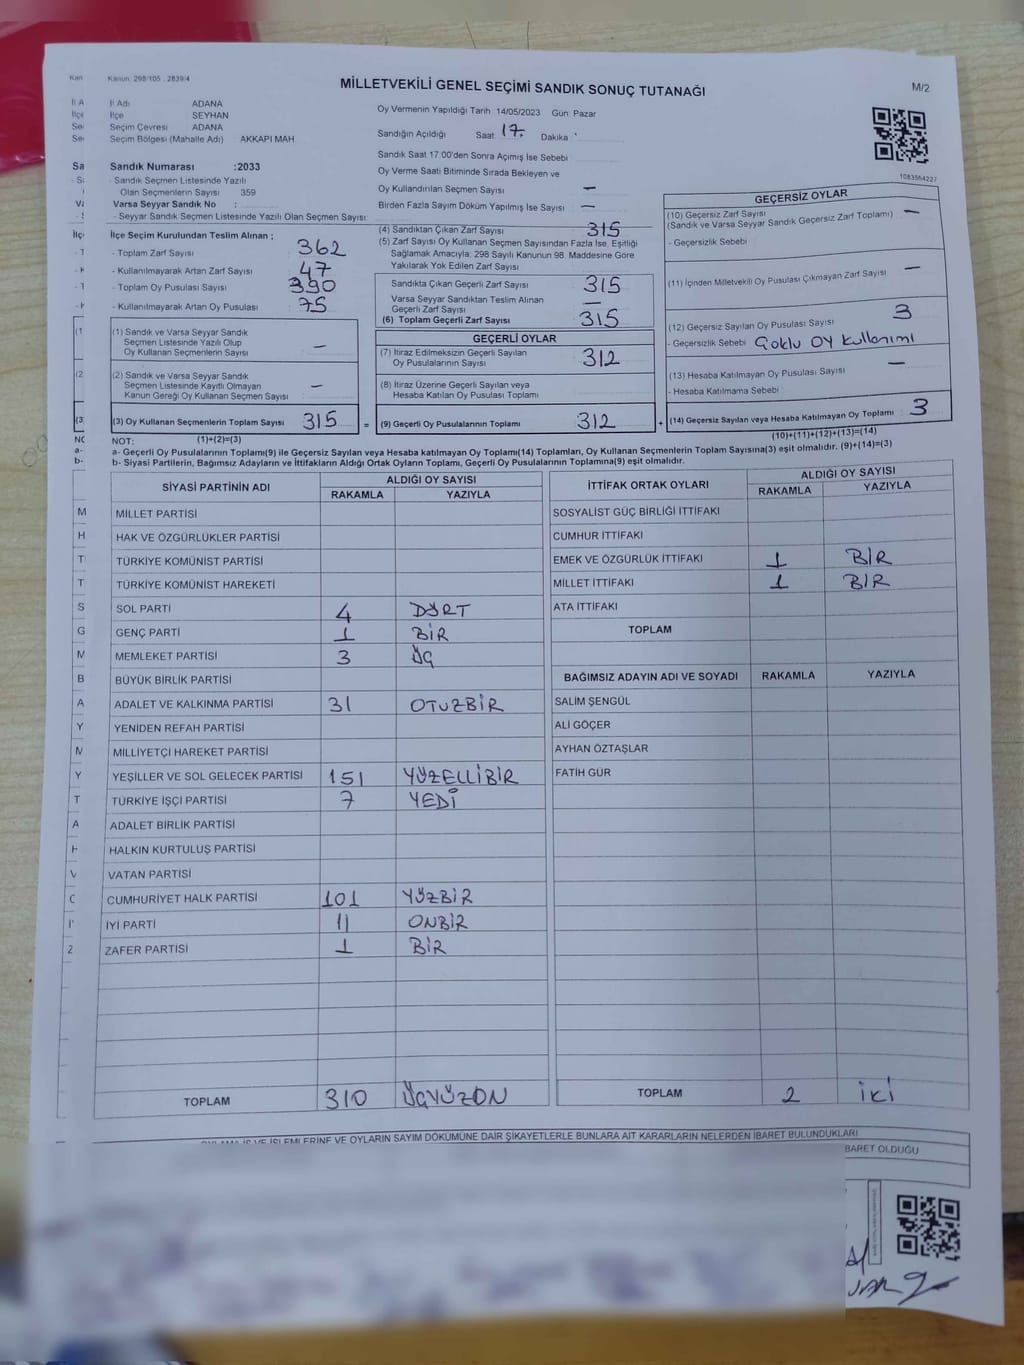 Kanun: 298/105 . 2839/4
MİLLETVEKİLİ GENEL SEÇİMİ SANDIK SONUÇ TUTANAĞI
M/2
İl Adı ADANA
İlçe SEYHAN
Seçim Çevresi ADANA
Seçim Bölgesi (Mahalle Adı) AKKAPI MAH
Oy Vermenin Yapıldığı Tarih 14/05/2023 Gün: Pazar
Sandığın Açıldığı Saat 17. Dakika
Sandık Saat 17.00'den Sonra Açımış İse Sebebi
Oy Verme Saati Bitiminde Sırada Bekleyen ve
Oy Kullandırılan Seçmen Sayısı –
Birden Fazla Sayım Döküm Yapılmış İse Sayısı –
1083564227
Sandık Numarası :2033
- Sandık Seçmen Listesinde Yazılı
Olan Seçmenlerin Sayısı 359
Varsa Seyyar Sandık No :
- Seyyar Sandık Seçmen Listesinde Yazılı Olan Seçmen Sayısı:
İlçe Seçim Kurulundan Teslim Alınan ;
- Toplam Zarf Sayısı 362
- Kullanılmayarak Artan Zarf Sayısı 47
- Toplam Oy Pusulası Sayısı 390
- Kullanılmayarak Artan Oy Pusulası 75
(1) Sandık ve Varsa Seyyar Sandık
Seçmen Listesinde Yazılı Olup
Oy Kullanan Seçmenlerin Sayısı –
(2) Sandık ve Varsa Seyyar Sandık
Seçmen Listesinde Kayıtlı Olmayan
Kanun Gereği Oy Kullanan Seçmen Sayısı –
(3) Oy Kullanan Seçmenlerin Toplam Sayısı 315 =
(4) Sandıktan Çıkan Zarf Sayısı 315
(5) Zarf Sayısı Oy Kullanan Seçmen Sayısından Fazla İse, Eşitliği
Sağlamak Amacıyla; 298 Sayılı Kanunun 98. Maddesine Göre
Yakılarak Yok Edilen Zarf Sayısı
Sandıkta Çıkan Geçerli Zarf Sayısı 315
Varsa Seyyar Sandıktan Teslim Alınan
Geçerli Zarf Sayısı –
(6) Toplam Geçerli Zarf Sayısı 315
GEÇERLİ OYLAR
(7) İtiraz Edilmeksizin Geçerli Sayılan
Oy Pusulalarının Sayısı 312
(8) İtiraz Üzerine Geçerli Sayılan veya
Hesaba Katılan Oy Pusulası Toplamı
(9) Geçerli Oy Pusulalarının Toplamı 312 +
GEÇERSİZ OYLAR
(10) Geçersiz Zarf Sayısı –
(Sandık ve Varsa Seyyar Sandık Geçersiz Zarf Toplamı)
- Geçersizlik Sebebi
(11) İçinden Milletvekili Oy Pusulası Çıkmayan Zarf Sayısı –
(12) Geçersiz Sayılan Oy Pusulası Sayısı 3
- Geçersizlik Sebebi Çoklu OY kullanımı
(13) Hesaba Katılmayan Oy Pusulası Sayısı –
- Hesaba Katılmama Sebebi
(14) Geçersiz Sayılan veya Hesaba Katılmayan Oy Toplamı 3
NOT: (1)+(2)=(3) (10)+(11)+(12)+(13)=(14)
a- Geçerli Oy Pusulalarının Toplamı(9) ile Geçersiz Sayılan veya Hesaba katılmayan Oy Toplamı(14) Toplamları, Oy Kullanan Seçmenlerin Toplam Sayısına(3) eşit olmalıdır. (9)+(14)=(3)
b- Siyasi Partilerin, Bağımsız Adayların ve İttifakların Aldığı Ortak Oyların Toplamı, Geçerli Oy Pusulalarının Toplamına(9) eşit olmalıdır.
SİYASİ PARTİNİN ADI ALDIĞI OY SAYISI
RAKAMLA YAZIYLA
MİLLET PARTİSİ
HAK VE ÖZGÜRLÜKLER PARTİSİ
TÜRKİYE KOMÜNİST PARTİSİ
TÜRKİYE KOMÜNİST HAREKETİ
SOL PARTİ 4 DÖRT
GENÇ PARTİ 1 BİR
MEMLEKET PARTİSİ 3 ÜÇ
BÜYÜK BİRLİK PARTİSİ
ADALET VE KALKINMA PARTİSİ 31 OTUZBİR
YENİDEN REFAH PARTİSİ
MİLLİYETÇİ HAREKET PARTİSİ
YEŞİLLER VE SOL GELECEK PARTİSİ 151 YÜZELLİBİR
TÜRKİYE İŞÇİ PARTİSİ 7 YEDİ
ADALET BİRLİK PARTİSİ
HALKIN KURTULUŞ PARTİSİ
VATAN PARTİSİ
CUMHURİYET HALK PARTİSİ 101 YÜZBİR
İYİ PARTİ 11 ONBİR
ZAFER PARTİSİ 1 BİR
TOPLAM 310 ÜÇYÜZON
İTTİFAK ORTAK OYLARI ALDIĞI OY SAYISI
RAKAMLA YAZIYLA
SOSYALİST GÜÇ BİRLİĞİ İTTİFAKI
CUMHUR İTTİFAKI
EMEK VE ÖZGÜRLÜK İTTİFAKI 1 BİR
MİLLET İTTİFAKI 1 BİR
ATA İTTİFAKI
TOPLAM
BAĞIMSIZ ADAYIN ADI VE SOYADI RAKAMLA YAZIYLA
SALİM ŞENGÜL
ALİ GÖÇER
AYHAN ÖZTAŞLAR
FATİH GÜR
TOPLAM 2 İKİ
OYLAMA İŞ VE İŞLEMLERİNE VE OYLARIN SAYIM DÖKÜMÜNE DAİR ŞİKAYETLERLE BUNLARA AİT KARARLARIN NELERDEN İBARET BULUNDUKLARI
BARET OLDUĞU